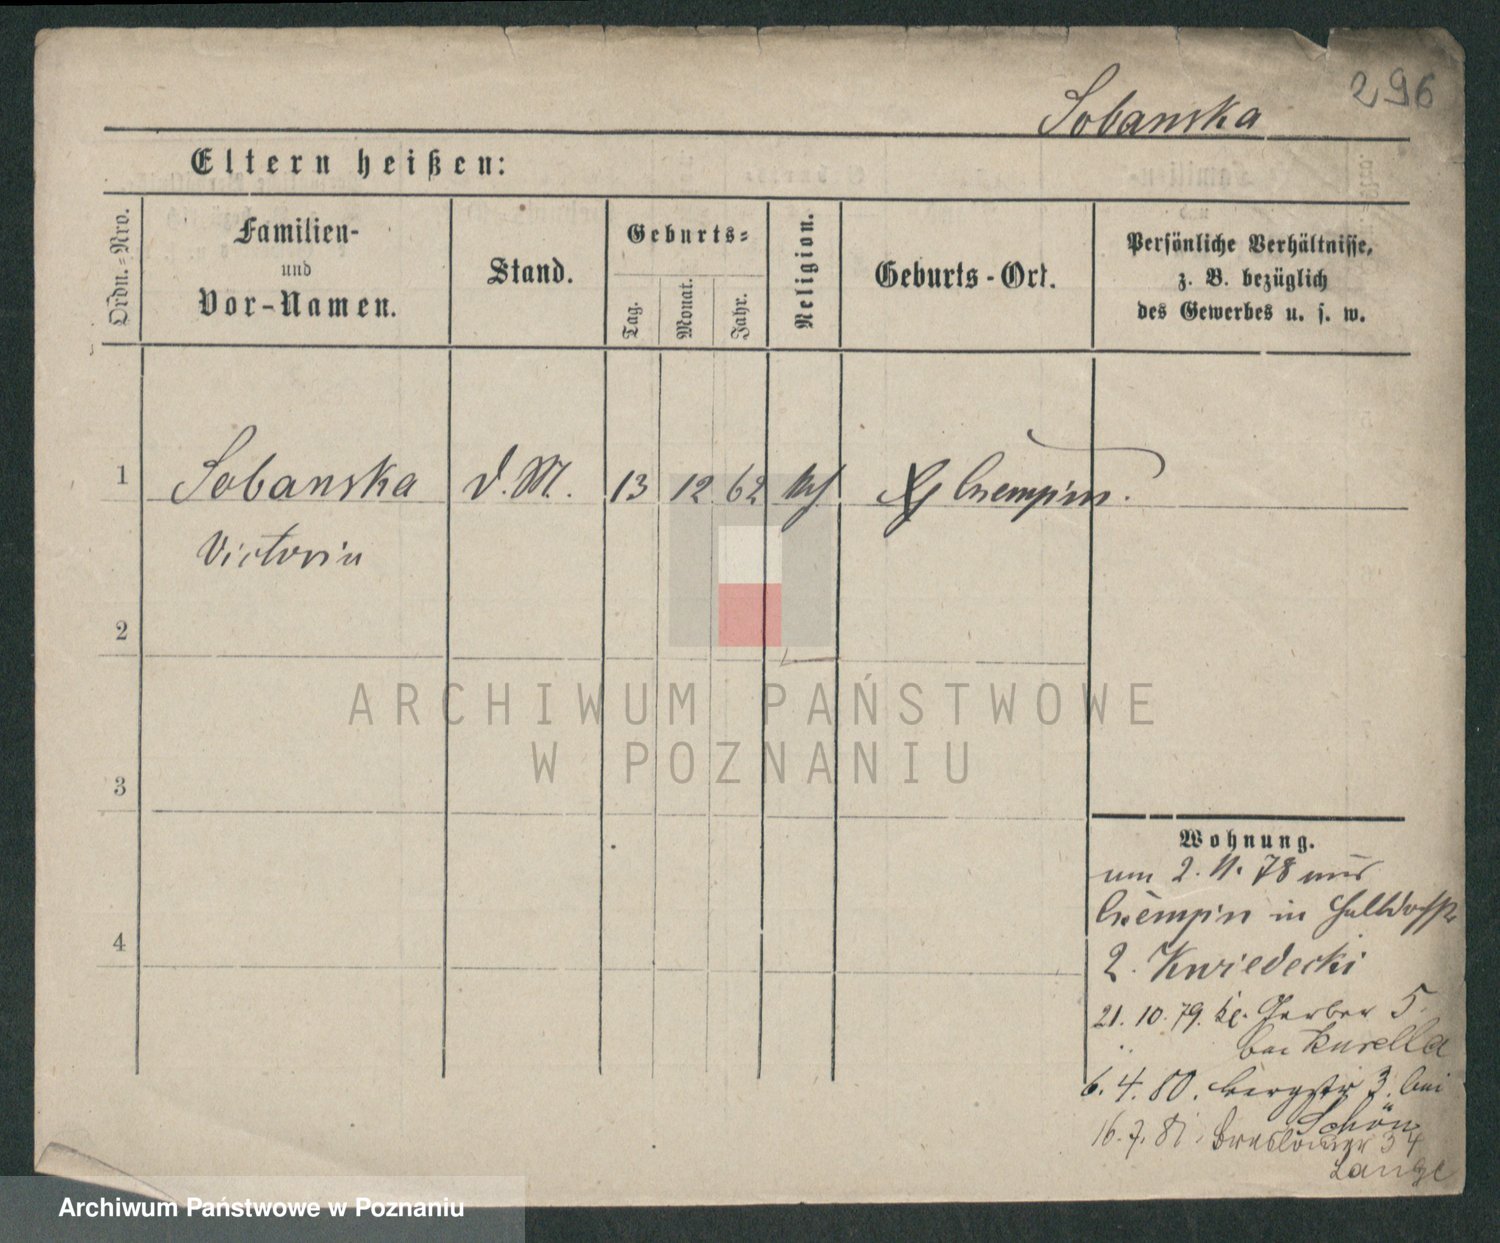 296
Sobanska
Eltern heißen:
Ordn.-Nro.
Familien-
und
Vor-Namen.
Stand.
Geburts-
Tag.
Monat.
Jahr.
Religion.
Geburts-Ort.
Persönliche Verhältnisse,
z. B. bezüglich
des Gewerbes u. s. w.
1
Sobanska
d. M.
13
12
62
Czempin.
Victoria
2
3
4
Wohnung.
2. 11. 78 aus
Czempin in
2. Kwiedecki
21. 10. 79. kl. Gerber 5.
bei Kurella
6. 4. 80. Bergstr 3. bei
Schön
16. 7. 81. Breslauer 34
Lange
ARCHIWUM PAŃSTWOWE
W POZNANIU
Archiwum Państwowe w Poznaniu